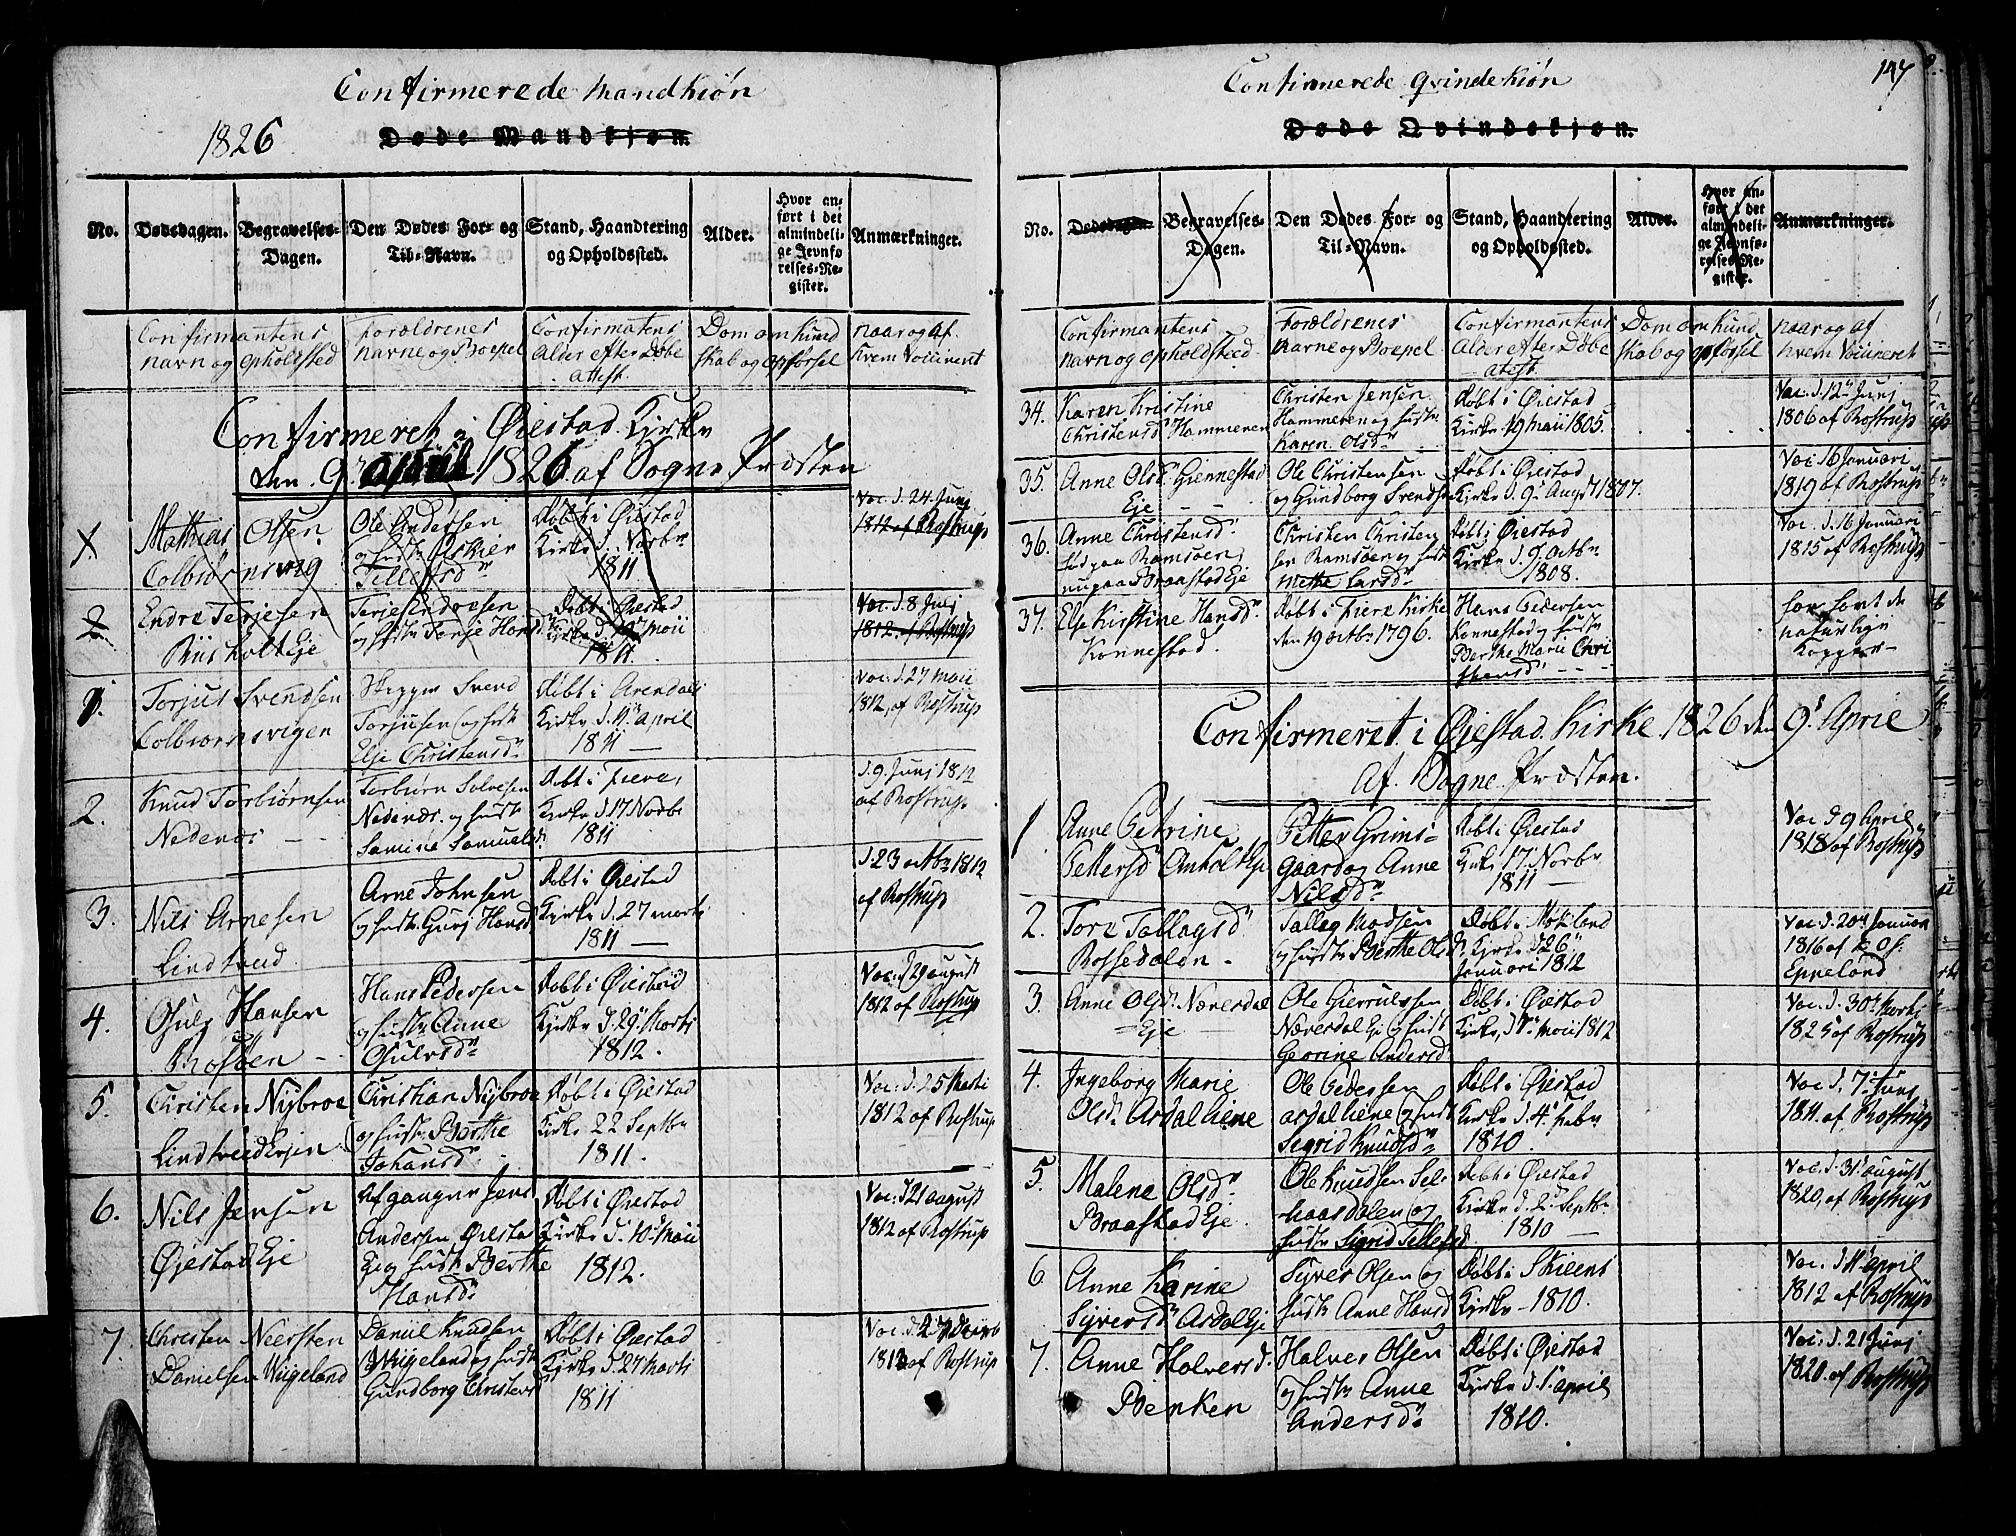 Confirmerede Mandkiøn
1826
Døde Mandkjøn.
No.
Dødsdagen.
Begravelses-
Dagen.
Den Dødes For- og
Til-Navn.
Stand, Haandtering
og Opholdssted.
Alder.
Hvor an-
ført i det
almindeli-
ge Jevnfø-
relses-Re-
gister.
Anmærkninger.
Confirmantens
navn og opholdsted
Forældrenes
navne og Boepel
Confirmatens
alder efter Døbe
attest.
Dom om kund
skab og opførsel
naar og af
hvem Vaccineret
Confirmeret i Øiestad Kirke
den 9. april 1826 af Sogne Præsten
1
Mathias Olsen
Colbiørnsvig
Ole Andersen
og hustr Askier
Tellefsdr
Døbt i Øiestad
Kirke d. Novbr
1811
Vac. d. 24 Junj
1812 af Rostrup
2.
Endre Terjesen
Riisholt Eje
Terje Endresen
og hustr Tonje Hansd
Døbt i Øiestad
Kirke d. Maii
1811.
Vac. d. 8 Julj
1812. af Rostrup
1.
Torjus Svendsen
Colbiørnsvigen
Skipper Svend
Torjusen og hust
Else Christensdr
Døbt i Arendals
Kirke d. 4 april
1811
Vac. d. 27 Maii
1812, af Rostrup
2.
Knud Torbiørnsen
Nedenæs
Torbiørn Solvesen
Nedenæs og hust
Samine Samuelsd.
Døbt i Fiere
Kirke d. 17 Novbr
1811
d. 9. Junj 1812
af Rostrup
3.
Nils Arnesen
Lindtveid
Arne Johnsen
og hustr Gurj Hansd
Døbt i Øiestad
Kirke d. 27 Marti
1811
d. 23 octbr 1812
af Rostrup
4.
Osulf Hansen
Rossøen
Hans Pedersen
og hustr Anne
Osulvsdr
Døbt i Øiestad
Kirke d. 29 Marti
1812.
Vac. d. 29 august
1812 af Rostrup
5.
Christen Nijbroe
Lindtveid Ejen
Christian Nijbroe
og hustr Berthe
Johansdr
Døbt i Øiestad
Kirke 22 Septbr
1811.
Vac. d. 25 Marti
1812 af Rostrup
6.
Nils Jensen
Øjestad Eje
Afgangne Jens
Andersen Øiestad
Ei og hust Berthe
Hansdr
Døbt i Øiestad
Kirke d. 10 Maii
1812.
Vac. d 21 august
1812 af Rostrup
7.
Christen Neersten
Danielsen Wigeland
Daniil Knudsen
Wigeland og hust
Gundborg Christensd
Døbt i Øiestad
Kirke d. 27 Marti
1811
Vac. d. 27
1812 af Rostrup
147
Confirmerede Qvindekiøn
Døde Qvindekjøn.
No.
Dødsdagen.
Begravelses-
Dagen.
Den Dødes For- og
Til-Navn.
Stand, Haandtering
og Opholdssted.
Alder.
Hvor an-
ført i det
almindeli-
ge Jevnfø-
relses-Re-
gister.
Anmærkninger.
Confirmantens
navn og opholdsteed
Forældrenes
navne og Boepel
Confirmantens
alder efter Døbe
atest
Dom om Kund
skab og opførsel
naar og af
hvem Vaccineret
34.
Karen Kristine
Christensdr Hammeren
Christen Jensen
Hammeren og hustr
Karen Olsdr
Døbt i Øiestad
Kirke 19 Maii 1805.
Vac. d. 12 Junj
1806 af Rostrup
35.
Anne Olsdr Giennestad
Eje
Ole Christensen
og Gundborg Svendsd
Døbt i Øiestad
Kirke d. 9 Augst 1807.
Vac 16 Januari
1819 af Rostrup
36.
Anne Christensdr
fød paa Ramsøen,
nu paa Braastad Eje
Christen Christen
sen Ramsøen og hustr
Mette Larsdr
Døbt i Øiestad
Kirke d. 9 Octbr
1808.
Vac. d. 16 Januari
1815 af Rostrup
37.
Else Kirstine Hansdr
Konnestad.
Døbt i Fiere Kirke
den 19 octbr 1796.
Hans Pedersen
Konnestad og hustr
Berthe Marie Chri
stensdr
har havt de
naturlige
Kopper
Confirmeret i Øjestad Kirke 1826 den 9 April
af Sogne Præsten.
1
Anne Petrine
Pettersd Anholt Eje
Petter Grims-
gaard og Anne
Nilsdr
Døbt i Øiestad
Kirke 17 Novbr
1811
Vac d 9 April
1818 af Rostrup
2.
Tore Tallagsdr
Rossedalen
Tallag Madsen
og hustr Berthe Olsd
Døbt i Mokland
Kirke d 26
Januari 1812
Vac d. 20 Januar
1816 af K. Of.
Eppeland
3
Anne Olsdr Næversdal
Eje
Ole Gierrulssen
Næversdal Eje og hust
Georine Andersd
Døbt i Øiestad
Kirke, d. 1 Maii 1812
Vac. d. 30 Marti
1825 af Rostrup
4.
Ingeborg Marie
Olsdr Asdal hiene
Ole Pedersen
asdal hiene og hust
Segrid Knudsdr
Døbt i Øiestad
Kirke d. 4 febr
1810.
Vac d. 7 Junj
1811. af Rostrup
5.
Malene Olsdr
Braastad Eje.
Ole Knudsen Sel-
haasdalen og
hustr Sigrid Tellefsd
Døbt i Øiestad
Kirke d. 2 Septbr
1810
Vac. d. 31 august
1820, af Rostrup
6
Anne Karine
Syversdr Asdal Eje
Syver Olsen og
hustr Anne Hansd
Døbt i Skiens
Kirke 1810.
Vac. d. 11 april
1812 af Rostrup
7.
Anne Halversd.
Benken
Halver Olsen
og hustr Anne
Andersdr
Døbt i Øiestad
Kirke d. 1 april
1810.
Vac. d. 21 Junj
1820. af Rostrup